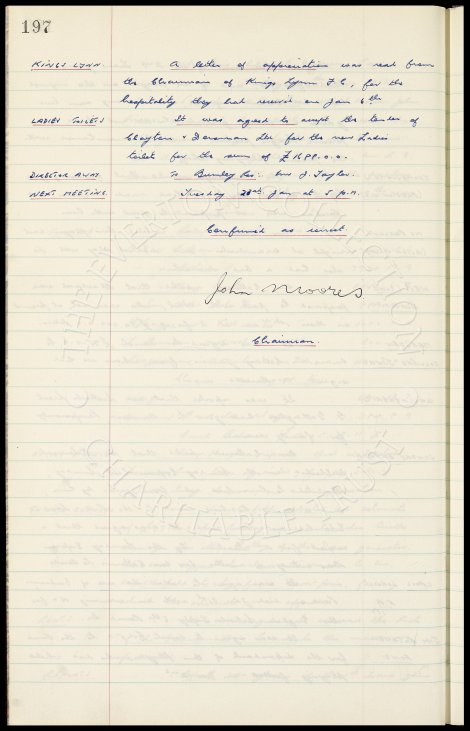 197
KINGS LYNN. A letter of appreciation was read from
the Chairman of Kings Lynn F.C. for the
hospitality they had received on Jan 6th
LADIES TOILETS It was agreed to accept the tender of
Clayton & Ltd for the new Ladies
toilet for the sum of
DIRECTOR AWAY. To Burnley Res: Mr J. Taylor.
NEXT MEETING. Tuesday 23rd Jan at 5 p.m.
Confirmed as correct.
John Moores
Chairman.
THE EVERTON COLLECTION
CHARITABLE TRUST